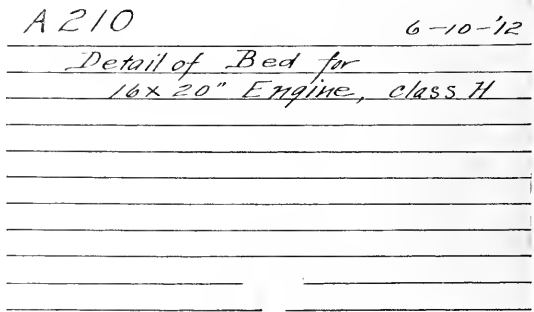 A 210 6-10-'12
Detail of Bed for
16 x 20" Engine, class H